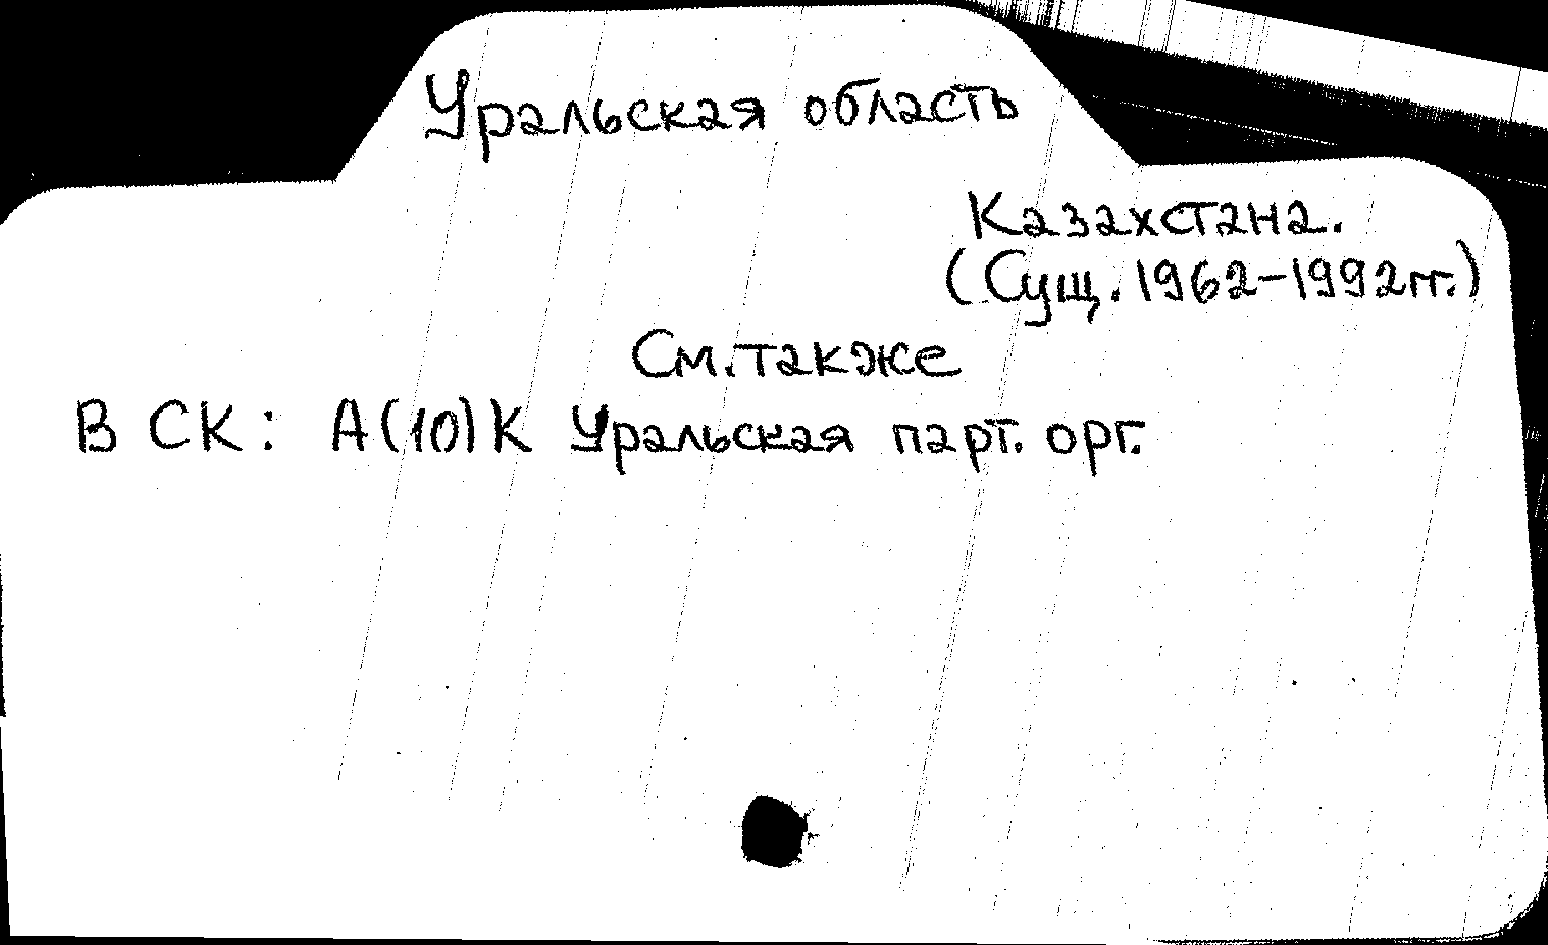 Уральская область
Казахстана.
(Сущ. 1962-1992гг.)
См. также
В СК: А(10)К Уральская парт. орг.